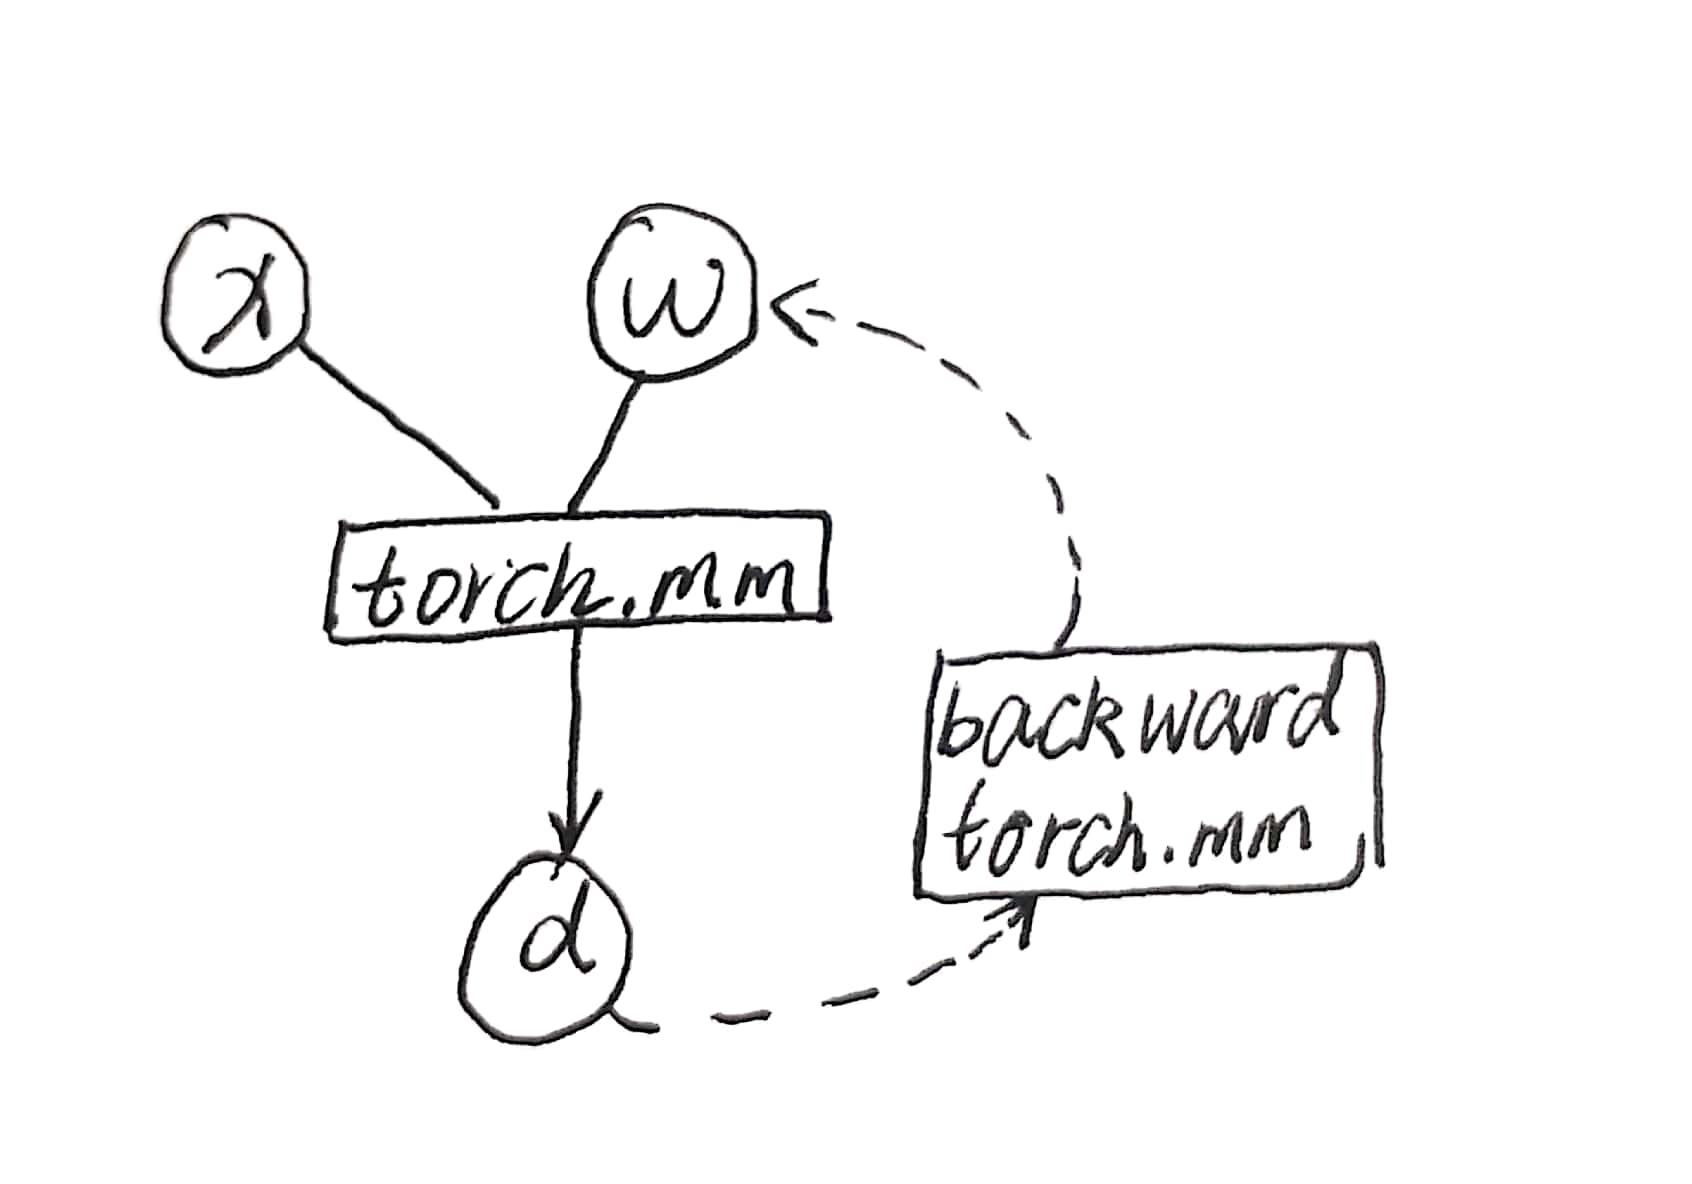 x
w
torch.mm
backward
torch.mm
d